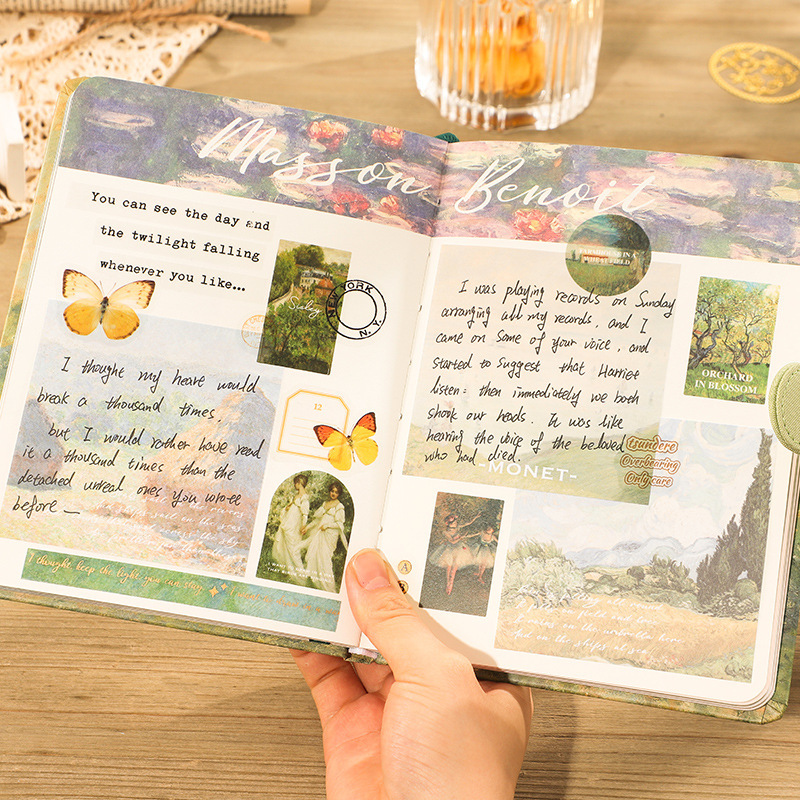 Masson Benoit
You can see the day and
the twilight falling
whenever you like...
NEW YORK
N.Y.
12
I thought my heart would
break a thousand times,
but I would rather have read
it a thousand times than the
detached unreal ones you wrote
before —
I thought, keep the light you can stay
I was playing records on Sunday
arranging all my records, and I
came on some of your voice, and
started to suggest that Harriet
listen: then immediately we both
shook our heads. It was like
hearing the voice of the beloved
who had died.
-MONET-
ORCHARD
IN BLOSSOM
tsundere
Overbearing
Only care
A